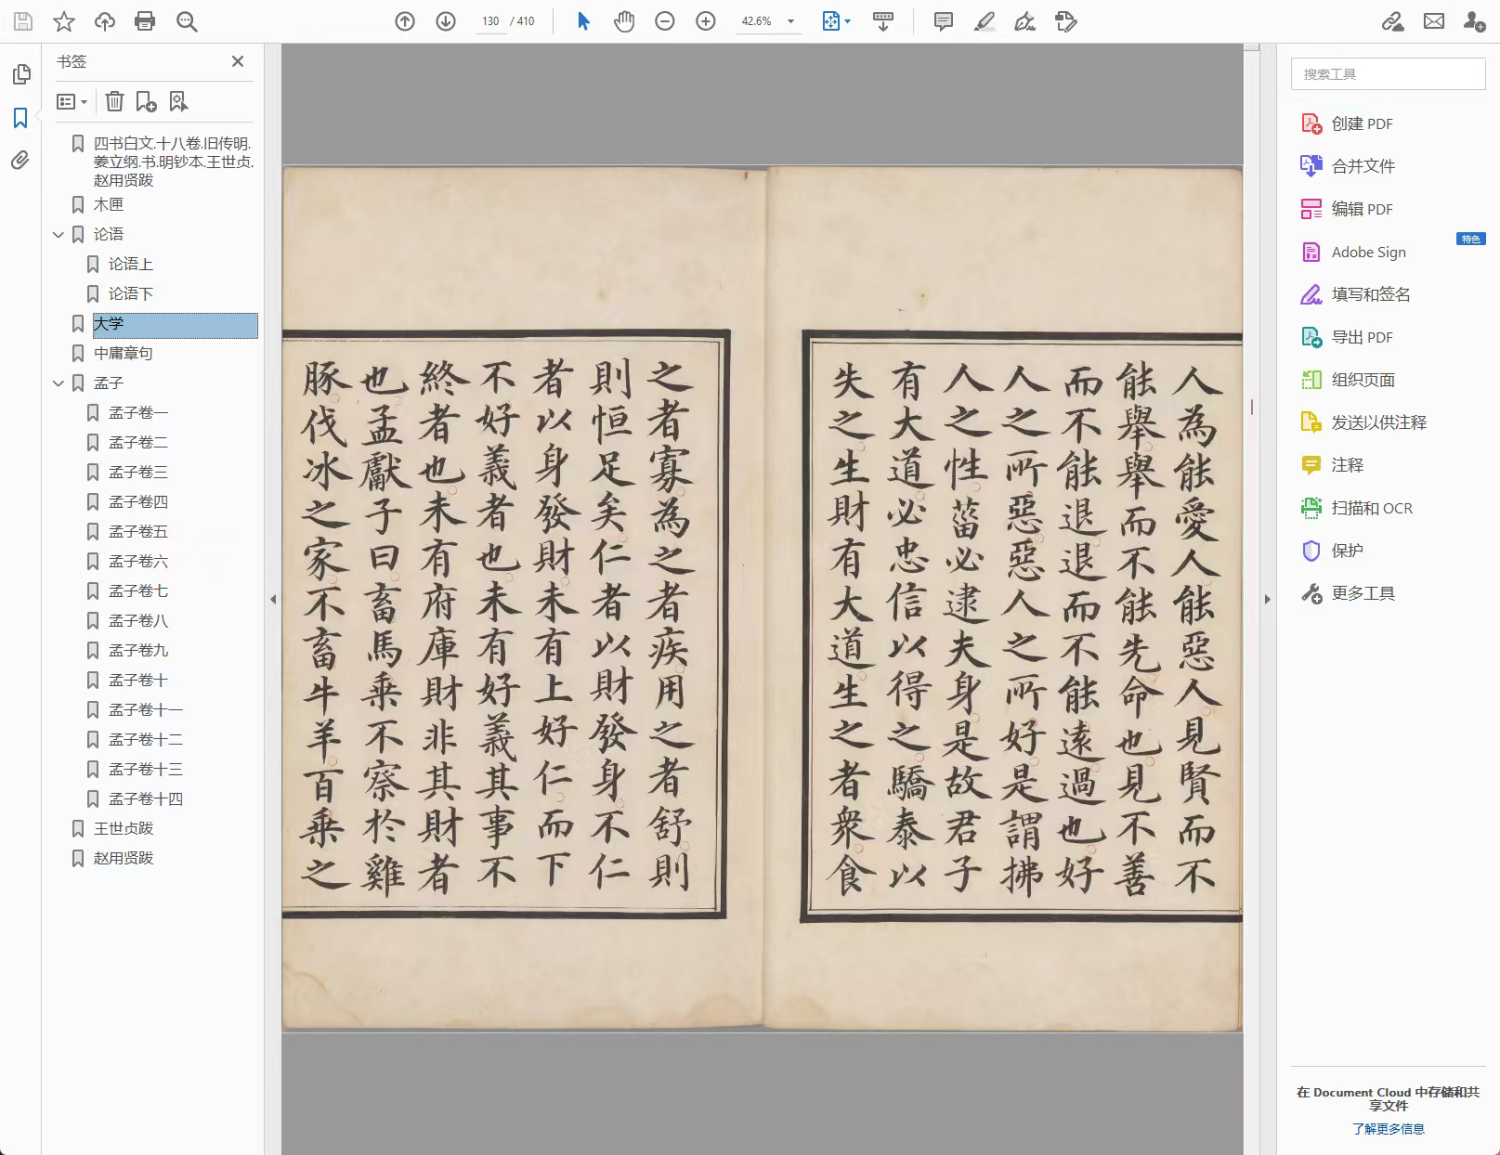 130 / 410
42.6%
书签
四书白文.十八卷.旧传明.
姜立纲.书.明钞本.王世贞.
赵用贤跋
木匣
论语
论语上
论语下
大学
中庸章句
孟子
孟子卷一
孟子卷二
孟子卷三
孟子卷四
孟子卷五
孟子卷六
孟子卷七
孟子卷八
孟子卷九
孟子卷十
孟子卷十一
孟子卷十二
孟子卷十三
孟子卷十四
王世贞跋
赵用贤跋
人為能愛人能惡人見賢而不
能舉舉而不能先命也見不善
而不能退退而不能遠過也好
人之所惡惡人之所好是謂拂
人之性菑必逮夫身是故君子
有大道必忠信以得之驕泰以
失之生財有大道生之者衆食
之者寡為之者疾用之者舒則
則恒足矣仁者以財發身不仁
者以身發財未有上好仁而下
不好義者也未有好義其事不
終者也未有府庫財非其財者
也孟獻子曰畜馬乗不察於雞
豚伐冰之家不畜牛羊百乗之
搜索工具
创建 PDF
合并文件
编辑 PDF
Adobe Sign
特色
填写和签名
导出 PDF
组织页面
发送以供注释
注释
扫描和 OCR
保护
更多工具
在 Document Cloud 中存储和共
享文件
了解更多信息